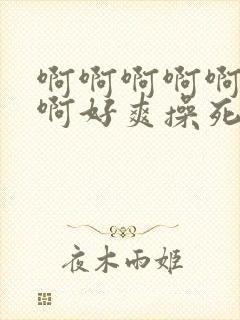 啊啊啊啊啊
啊好爽操死
夜木雨姬